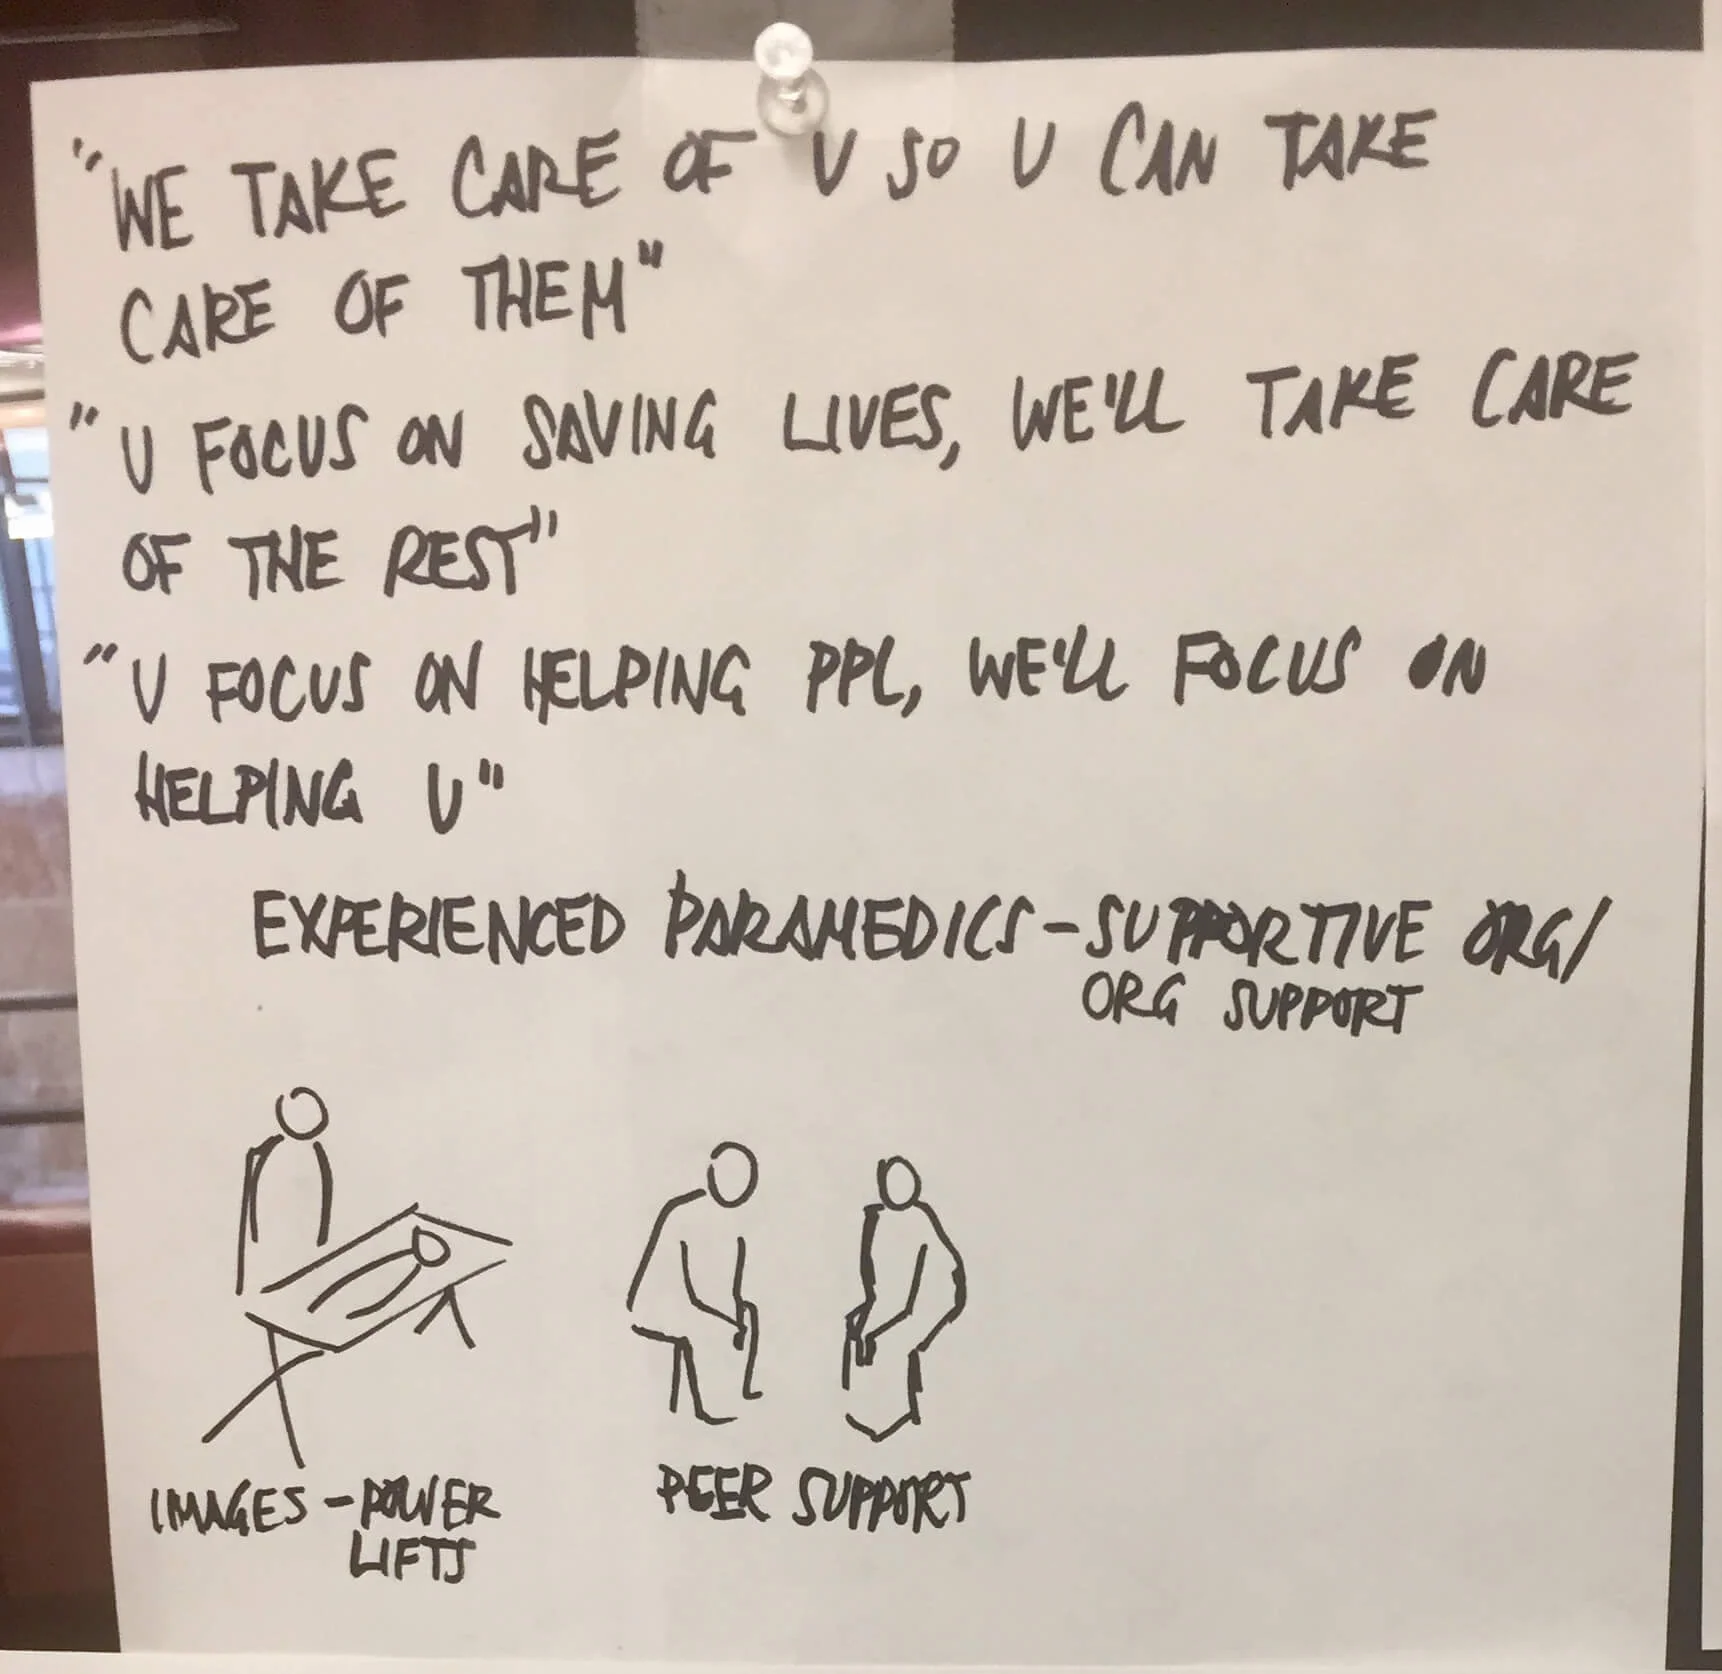 "WE TAKE CARE OF U SO U CAN TAKE
CARE OF THEM"
"U FOCUS ON SAVING LIVES, WE'LL TAKE CARE
OF THE REST"
"U FOCUS ON HELPING PPL, WE'LL FOCUS ON
HELPING U"
EXPERIENCED PARAMEDICS - SUPPORTIVE ORG/
ORG SUPPORT
IMAGES - POWER
LIFTS
PEER SUPPORT